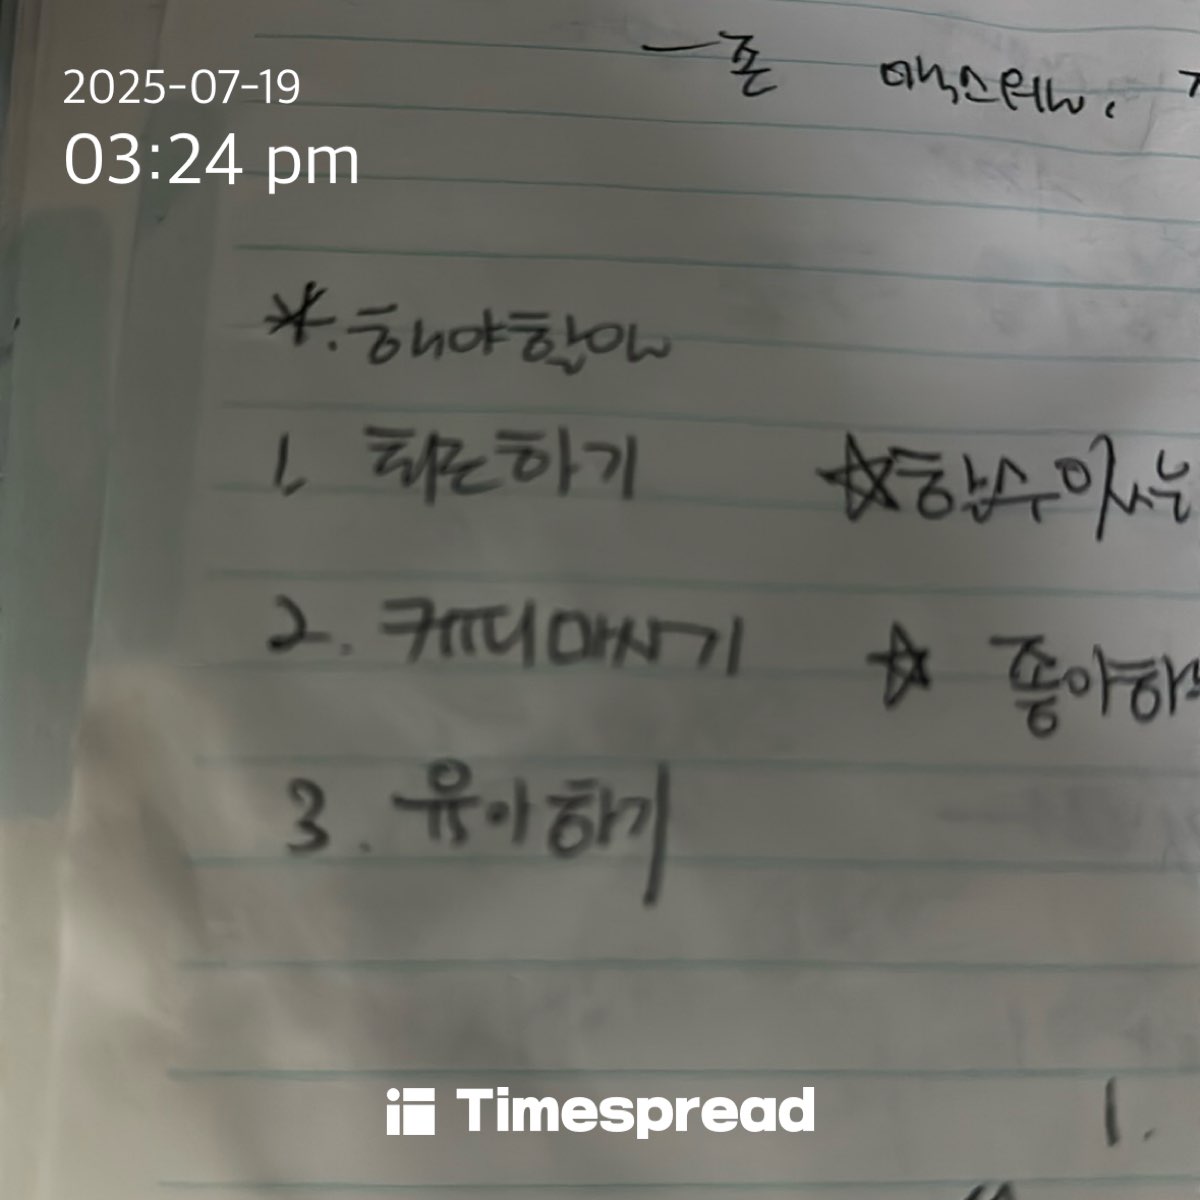 2025-07-19
03:24 pm
-존 맥스웰.
*. 해야할일
1. 퇴근하기
☆할수있는
2. 커피마시기
☆ 좋아하
3. 육아하기
1.
Timespread